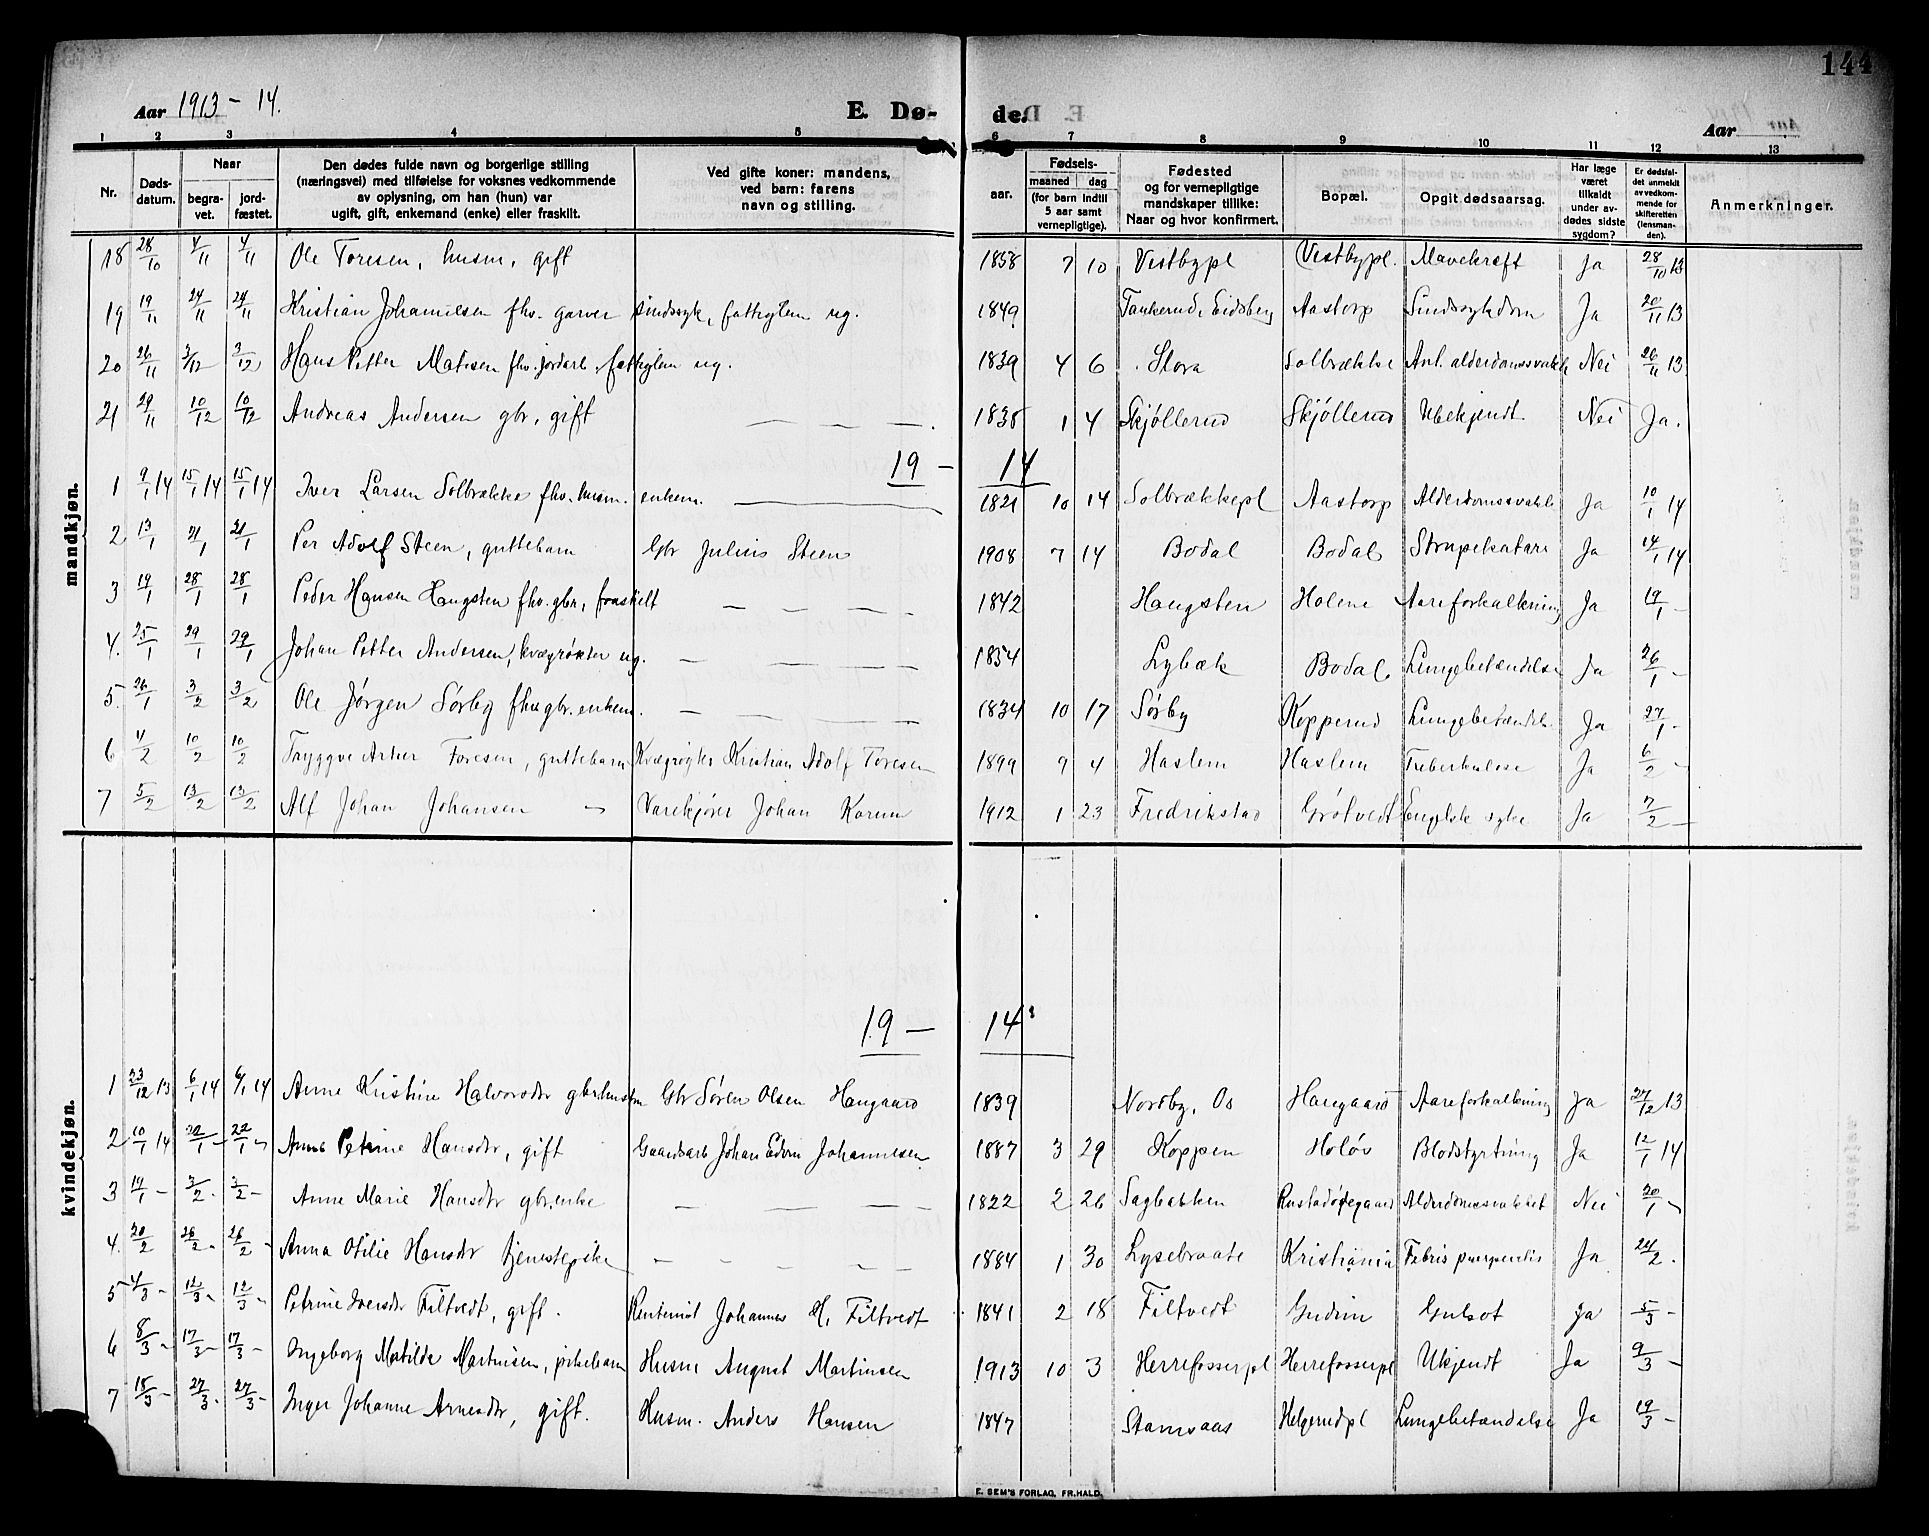 144
Aar 1913 - 14. E. Dø- de. Aar
1 2 3 4 5 6 7 8 9 10 11 12 13
Nr. Døds-datum. Naar begra-vet. jord-fæstet. Den dødes fulde navn og borgerlige stilling (næringsvei) med tilføielse for voksnes vedkommende av oplysning, om han (hun) var ugift, gift, enkemand (enke) eller fraskilt. Ved gifte koner: mandens, ved barn: farens navn og stilling. Fødsels- aar. maaned dag (for barn indtil 5 aar samt vernepligtige). Fødested og for vernepligtige mandskaper tillike: Naar og hvor konfirmert. Bopæl. Opgit dødsaarsag. Har læge været tilkaldt under av-dødes sidste sygdom? Er dødsfal-det anmeldt av vedkom-mende for skifteretten (lensman-den). Anmerkninger.
mandkjøn.
18 28/10 4/11 4/11 Ole Toresen, husm, gift 1858 7 10 Vestbypl Vestbypl. Mavekræft Ja 28/10 13
19 19/11 24/11 24/11 Kristian Johannesen fhv. garver sindssyk, fattiglem ug. 1849 Tankerud, Eidsberg Aastorp Sindssykdom Ja 20/11 13
20 26/11 3/12 3/12 Hans Petter Matisen fhv. jordarb. fattiglem ug. 1839 4 6 Stora Solbrække Ant. alderdomssvakh Nei 26/11 13
21 29/11 10/12 10/12 Andreas Andersen gbr, gift — — — 1835 1 4 Skjøllerud Skjøllerud Ubekjendt Nei Ja.
19 — 14
1 9/1 14 15/1 14 15/1 14 Iver Larsen Solbrække fhv. husm. enkem. 1821 10 14 Solbrækkepl Aastorp Alderdomssvakh Ja 10/1 14
2 13/1 21/1 21/1 Per Adolf Steen, guttebarn Gbr Julius Steen 1908 7 14 Bodal Bodal Strupekatarr Ja 14/1 14
3 19/1 28/1 28/1 Peder Hansen Haugsten fhv. gbr, fraskilt — — — — 1842 Haugsten Holene Aareforkalkning Ja 19/1 —
4. 25/1 29/1 29/1 Johan Petter Andersen, kvægrøkter ug. — — — — 1854 Lybæk Bodal Lungebetændelse Ja 26/1 —
5. 26/1 3/2 3/2 Ole Jørgen Sørby fhv gbr. enkem. — — — — 1834 10 17 Sørby Kopperud Lungebetændels Ja 27/1 -
6 4/2 10/2 10/2 Tryggve Arther Toresen, guttebarn Kvægrøgter Kristian Adolf Toresen 1899 9 4 Haslem Haslem Tuberkulose Ja 6/2 —
7 5/2 13/2 13/2 Alf Johan Johansen — Varekjører Johan 1912 1 23 Fredrikstad Grøtvedt Engelsk syke Ja 7/2 —
19 — 14
kvindekjøn.
1 23/12 13 6/1 14 6/1 14 Anne Kristine Halvorsdtr Gbr Søren Olsen Haugaard 1839 Nordby, Os Haugaard Aareforkalkning Ja 27/12 13
2 10/1 14 22/1 — 22/1 — Anne Petrine Hansdtr, gift Gaardarb Johan Edvin Johannesen 1887 3 29 Koppen Holøs Blodstyrtning Ja 12/1 14
3 19/1 — 3/2 - 3/2 — Anne Marie Hansdtr gbr.enke — — — — 1822 2 26 Sagbakken Rustadødegaard Alderdomssvakhet Nei 20/1 —
4. 20/2 26/2 - 26/2 - Anna Otilie Hansdtr tjenestepike — — — — — 1884 1 30 Lysebraate Kristiania Febris puerperalis Ja 24/2 -
5 4/3 - 12/3 - 12/3 - Petrine Iversdtr Filtvedt, gift. Rentenist Johannes H, Filtvedt 1841 2 18 Filtvedt Gudim Gulsot Ja 5/3 —
6 8/3 — 17/3 — 17/3 — Ingeborg Matilde Martinsen, pikebarn Husm August Martinsen 1913 10 3 Herrefosserpl Herrefosserpl Ukjendt Ja 9/3 —
7 15/3 — 27/3 - 27/3 - Inger Johanne Arnesdtr, gift. Husm. Anders Hansen 1847 Stamsaas Helgerudpl Lungebetændelse Ja 19/3 —
E. SEM'S FORLAG, FR.HALD.